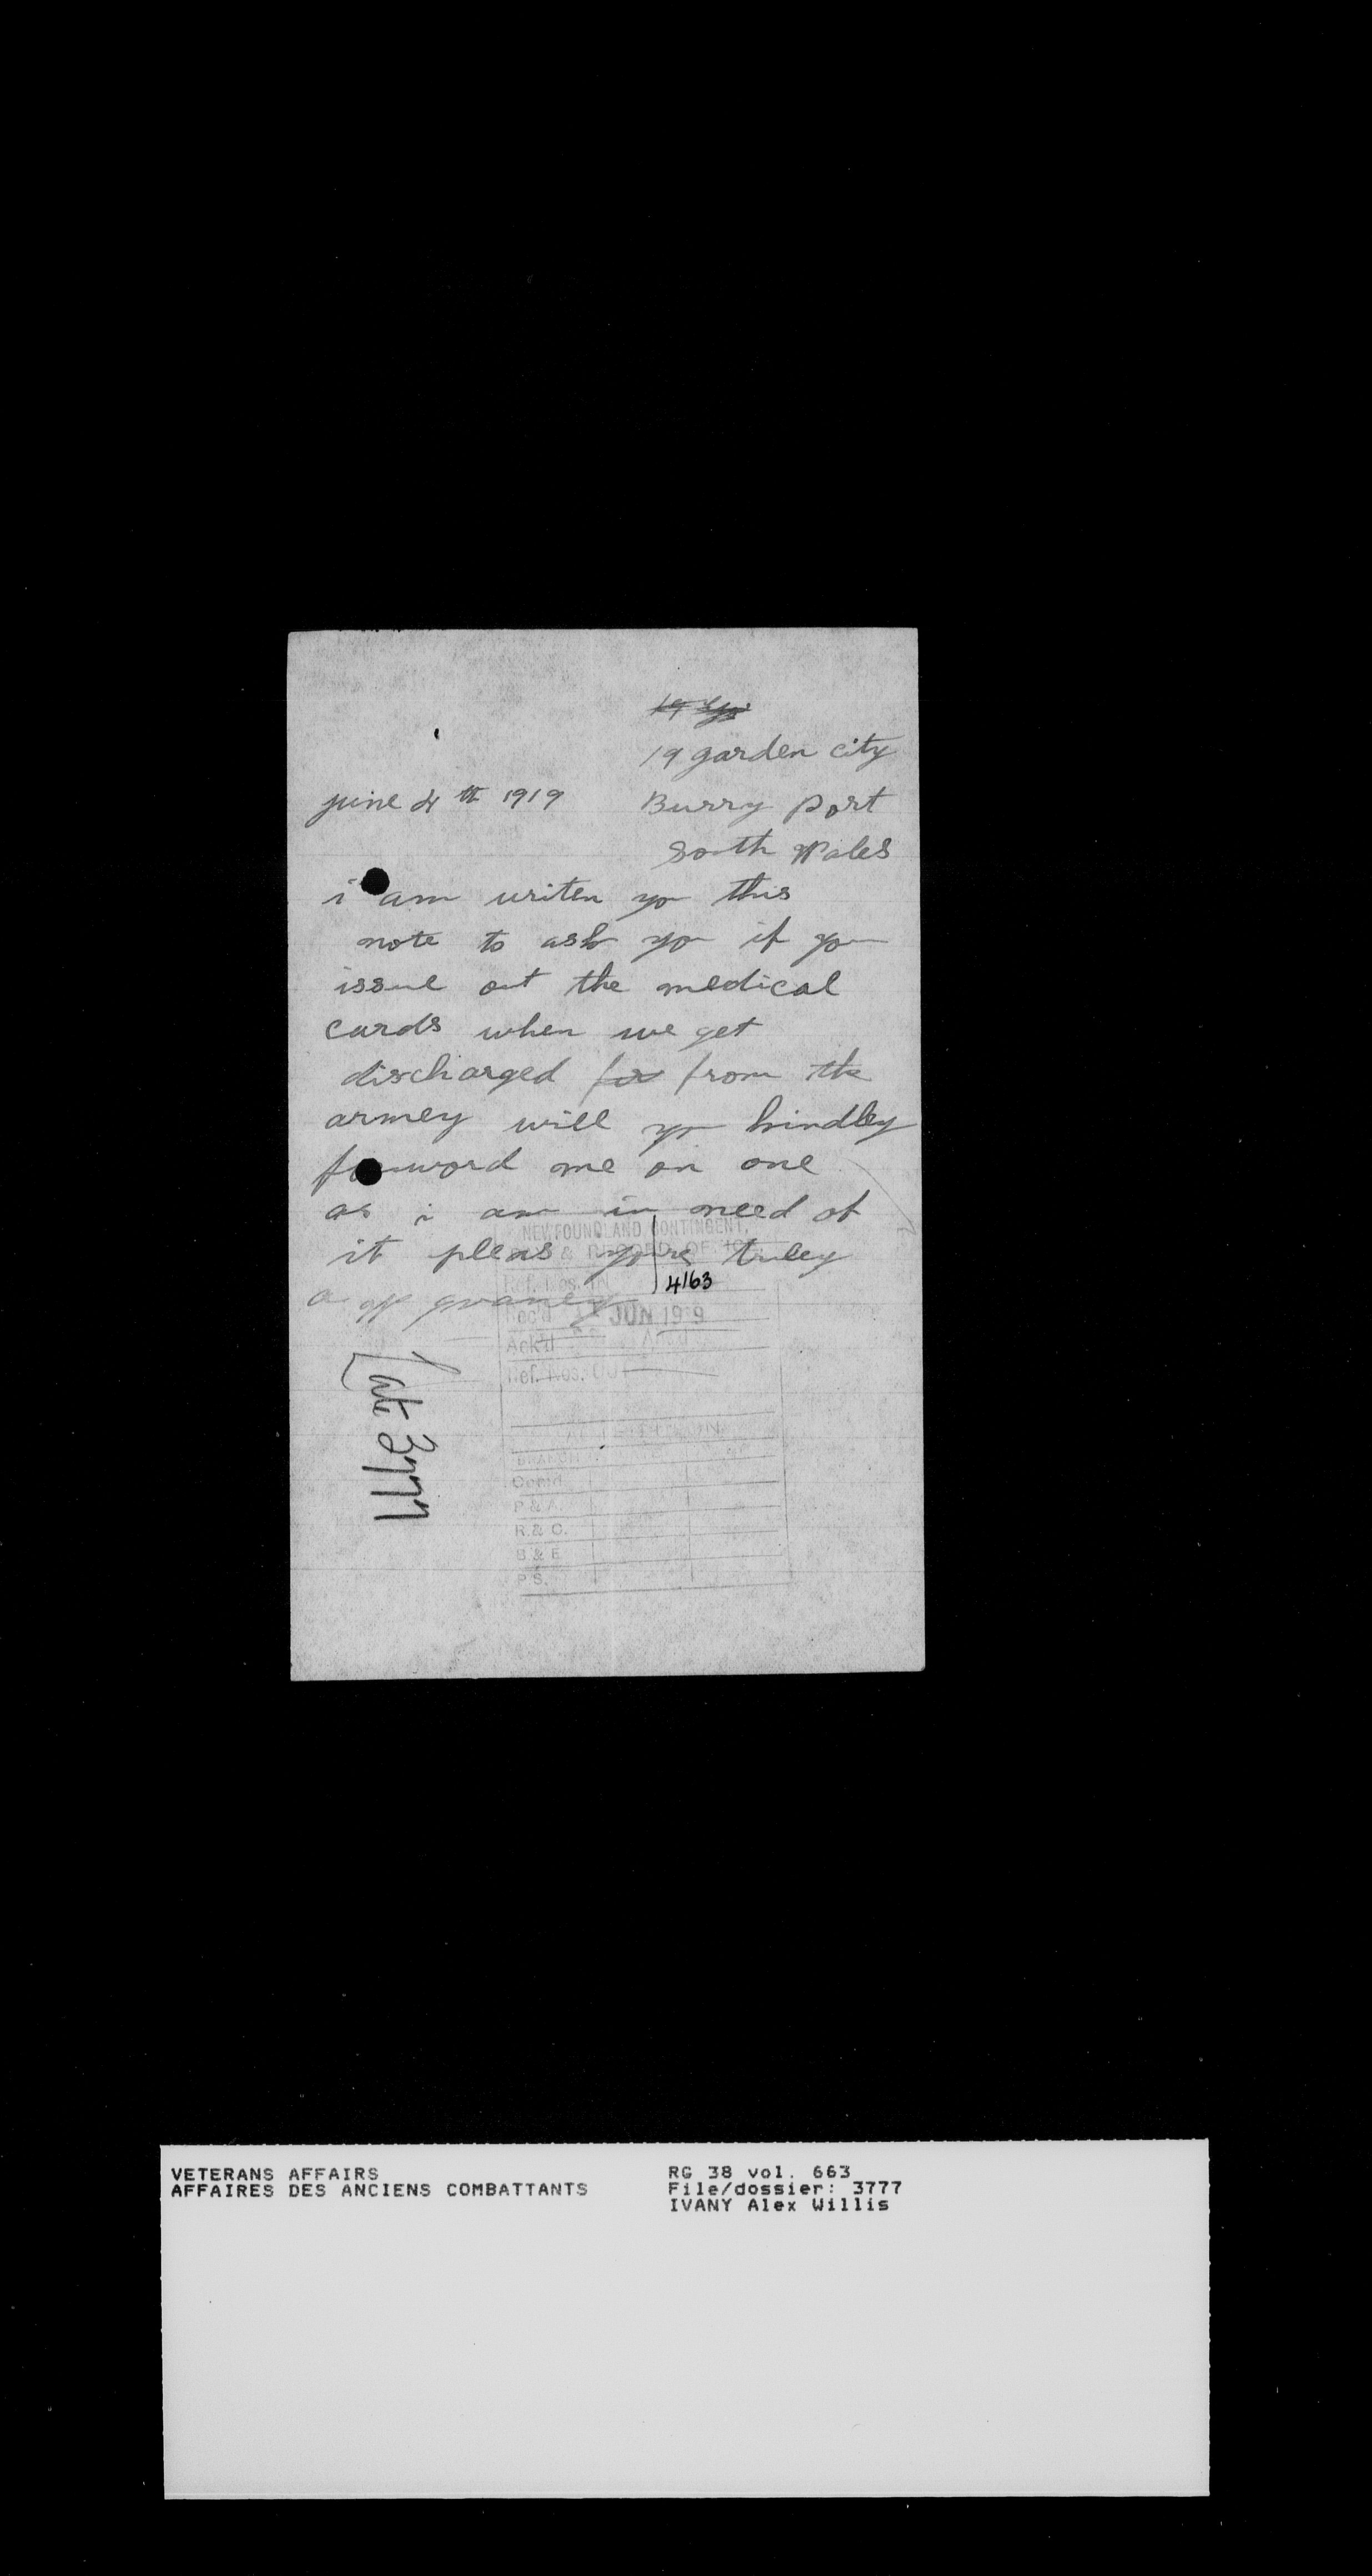 19 garden city
june 4th 1919 Burry Port
South Wales
i am writen yo this
note to ask yo if you
issue out the medical
cards when we get
discharged for from the
armey will yo kindley
forword me on one
as i am in need of
it pleas yours truley
a w ivaney
Late 3777
NEWFOUNDLAND CONTINGENT,
& RECORD OFFICE
Ref. Nos. IN 4163
Rec'd JUN 1919
Ack'd
Ref. Nos. OUT
BRANCH
Comd
P & A.
R. & C.
S & E
P S.
VETERANS AFFAIRS RG 38 vol. 663
AFFAIRES DES ANCIENS COMBATTANTS File/dossier: 3777
IVANY Alex Willis